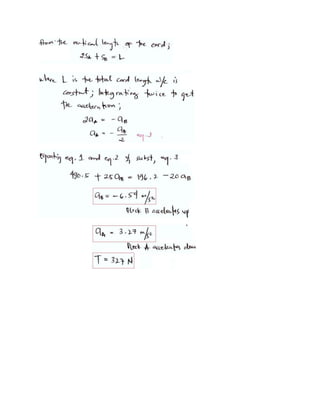 from the vertical length of the cord;
2SA + SB = L
where L is the total cord length w/c is
constant; Integrating twice to get
the acceleration;
2aA = - aB
aA = - aB/2 eq. 3
Equating eq. 1 and eq. 2 & subst, eq. 3
490.5 + 25aB = 196.2 - 20aB
aB = - 6.54 m/s²
Block B accelerates up
aA = 3.27 m/s²
Block A accelerates down
T = 327 N